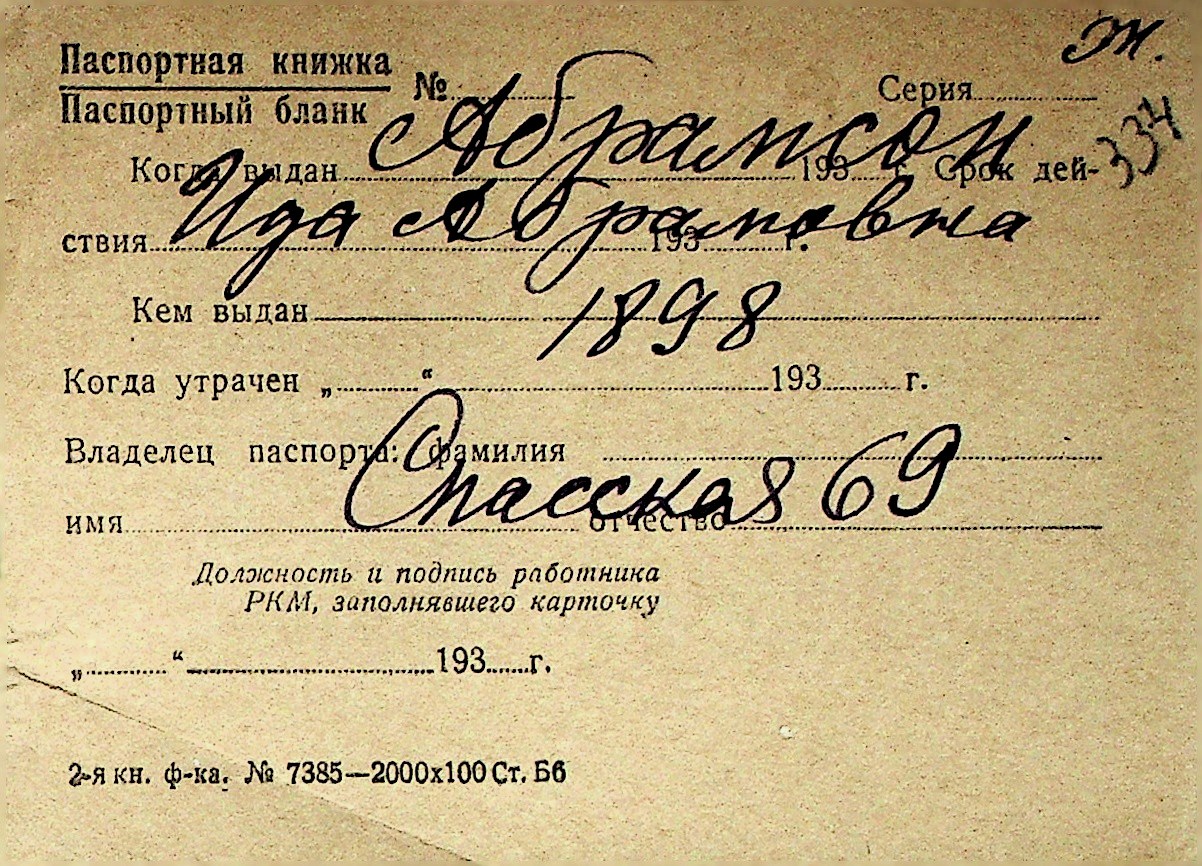 Ж.
Паспортная книжка
Паспортный бланк
№ Серия
334
Абрамсон
Когда выдан 193 г. Срок дей-
Ида Абрамовна
ствия 193 г.
Кем выдан
1898
Когда утрачен „ “ 193 г.
Владелец паспорта: фамилия
Спасская 69
имя отчество
Должность и подпись работника
РКМ, заполнявшего карточку
„ “ 193 г.
2-я кн. ф-ка. № 7385—2000х100 Ст. Б6